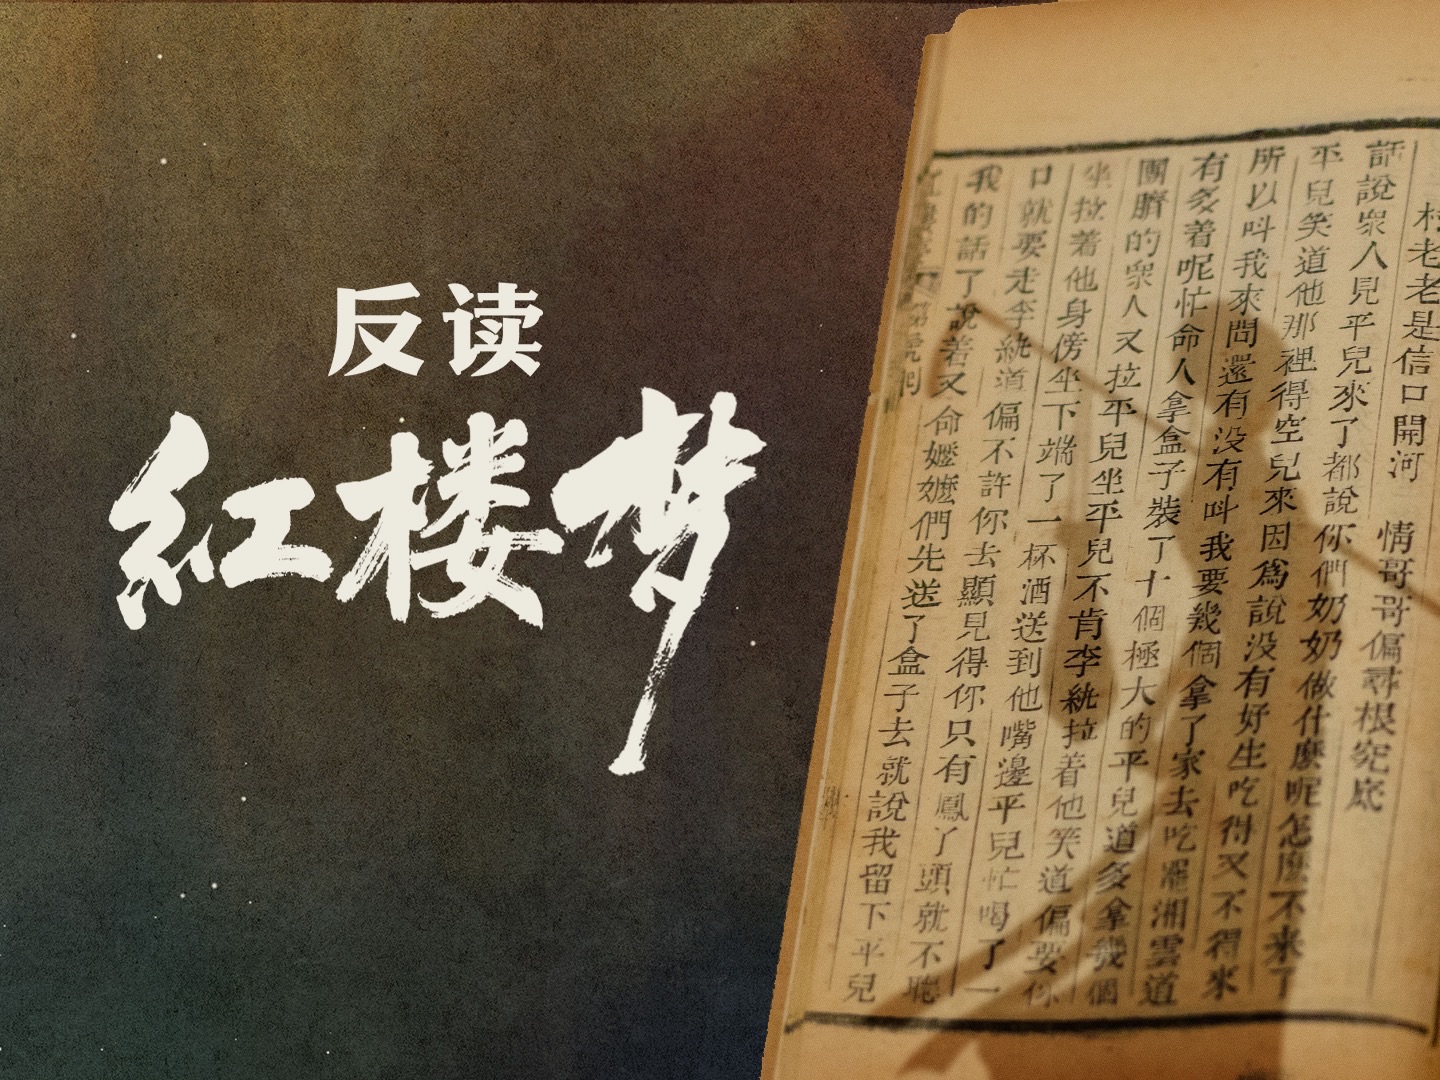 反读
红楼梦
老老是信口開河 情哥哥偏尋根究底
話說衆人見平兒來了都說你們奶奶做什麼呢怎麼不來了
平兒笑道他那裡得空兒來因爲說没有好生吃得又不得來
所以叫我來問還有没有叫我要幾個拿了家去吃罷湘雲道
有多着呢忙命人拿盒子裝了十個極大的平兒道多拿幾個
團臍的衆人又拉平兒坐平兒不肯李紈拉着他笑道偏要你
坐拉着他身傍坐下端了一杯酒送到他嘴邊平兒忙喝了一
口就要走李紈道偏不許你去顯見得你只有鳳丫頭就不聽
我的話了說着又命嬷嬷們先送了盒子去就說我留下平兒